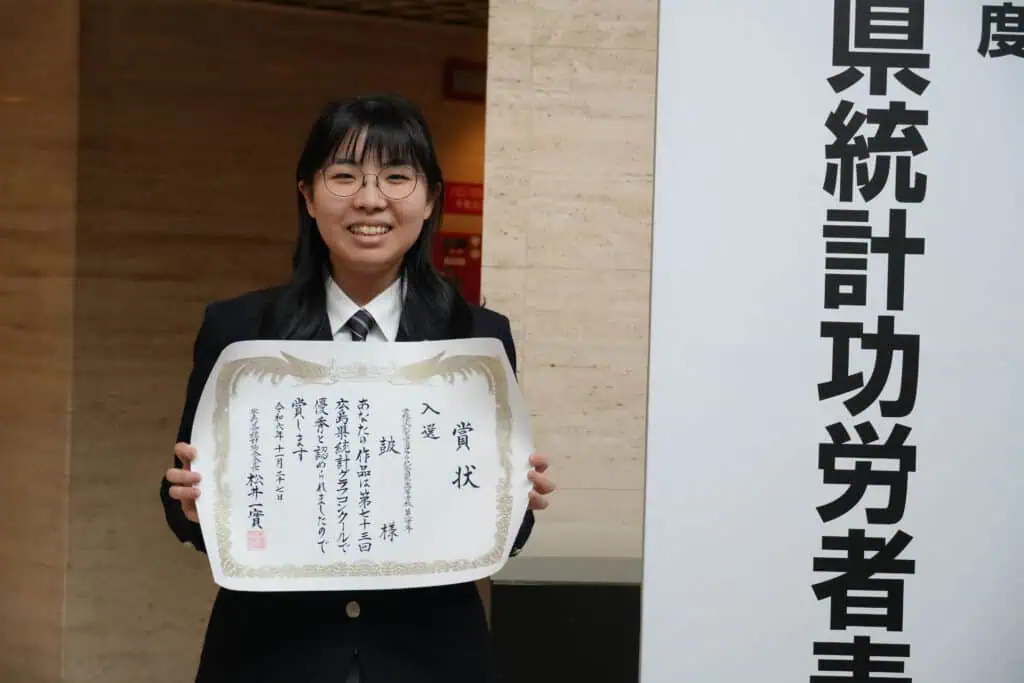 賞状
入選
様
あなたの作品は第七十三回
広島県統計グラフコンクールで
優秀と認められましたので
賞します
令和六年十一月二十七日
松井一實
度
県統計功労者表